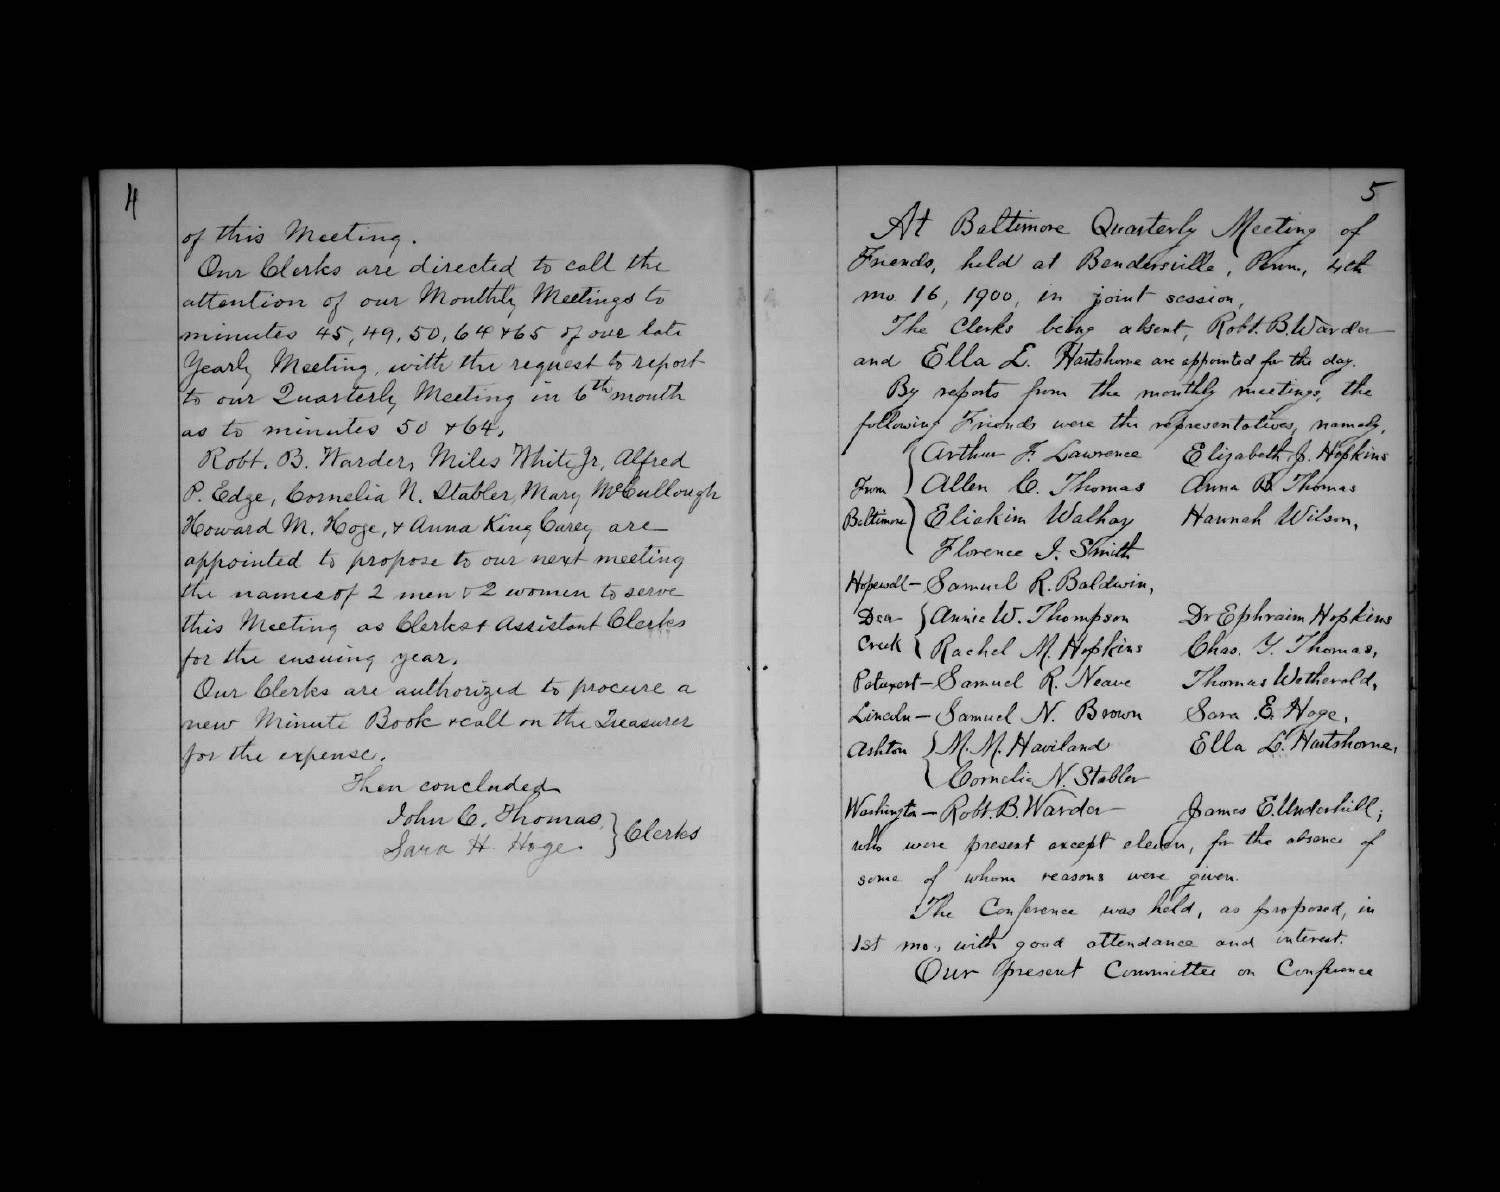 4
of this Meeting.
Our Clerks are directed to call the
attention of our Monthly Meetings to
minutes 45, 49, 50, 64 & 65 of our late
Yearly Meeting, with the request to report
to our Quarterly Meeting in 6th month
as to minutes 50 & 64.
Robt. B. Warder, Miles White Jr, Alfred
P. Edge, Cornelia N. Stabler, Mary McCullough
Howard M. Hoge, & Anna King Carey are
appointed to propose to our next meeting
the names of 2 men & 2 women to serve
this Meeting as Clerks & Assistant Clerks
for the ensuing year.
Our Clerks are authorized to procure a
new Minute Book & call on the Treasurer
for the expense.
Then concluded
John C. Thomas
Sara H. Hoge } Clerks
5
At Baltimore Quarterly Meeting of
Friends, held at Bendersville, Penn., 4th
mo. 16, 1900, in joint session,
The Clerks being absent, Robt. B. Warder
and Ella L. Hartshorne are appointed for the day.
By reports from the monthly meetings, the
following Friends were the representatives, namely,
Arthur F. Lawrence Elizabeth J. Hopkins
From Allen C. Thomas Anna B. Thomas
Baltimore Eliakim Walhay Hannah Wilson,
Florence I. Smith
Hopewell – Samuel R. Baldwin,
Deer { Annie W. Thompson Dr Ephraim Hopkins
Creek { Rachel M. Hopkins Chas. Y. Thomas,
Patuxent – Samuel R. Neave Thomas Wetherald,
Lincoln – Samuel N. Brown Sara E. Hoge,
Ashton { M. M. Haviland Ella L. Hartshorne,
Cornelia N. Stabler
Washington – Robt. B. Warder James E. Underhill;
who were present except eleven, for the absence of
some of whom reasons were given.
The Conference was held, as proposed, in
1st mo., with good attendance and interest.
Our present Committee on Conference